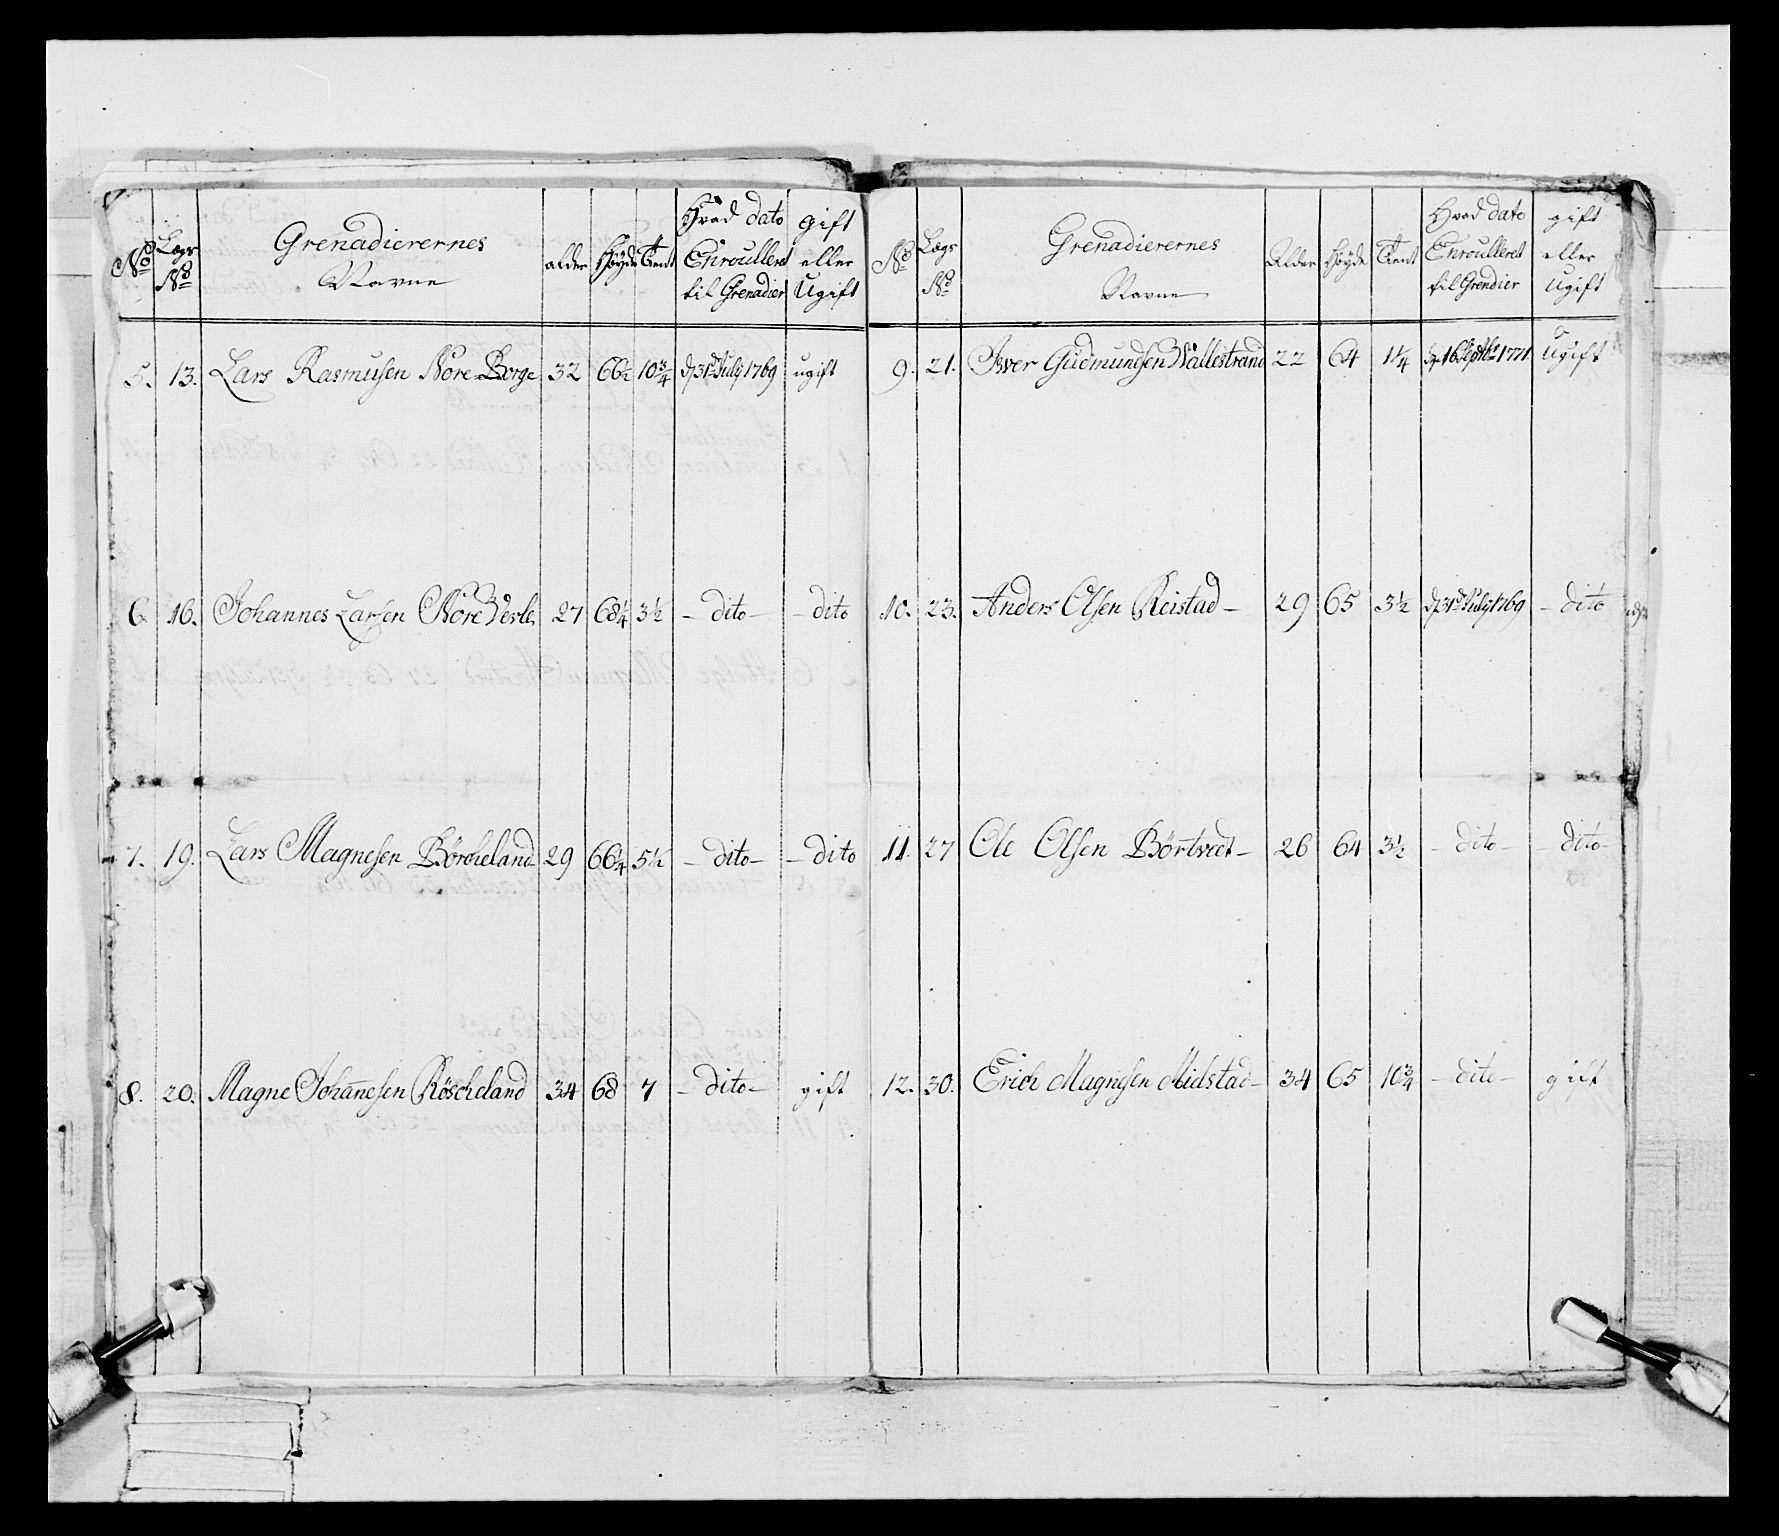 No Lægs No Grenadierernes Navne alder Høyde Tent Hvad dato Enroulleret til Grenadier gift eller Ugift
5. 13. Lars Rasmusen Nore Borge 32 66½ 10¾ d 31te July 1769 ugift
6. 16. Johannes Larsen Nore Verle 27 68¼ 3½ – dito – – dito
7. 19. Lars Magnesen Börcheland 29 66¼ 5½ – dito – – dito
8. 20. Magne Johannesen Röscheland 34 68 7 – dito – gift
No Lægs No Grenadierernes Navne Alder Høyde Tent Hvad dato Enroulleret til Grendier gift eller Ugift
9. 21. Iver Gudmundsen Wallestrand 22 64 1¼ d 16 Septbr 1771. Ugift
10. 23. Anders Olsen Reistad – 29 65 3½ d 31te July 1769 – dito
11. 27 Ole Olsen Börtveet – 26 64 3½ – dito – – dito –
12. 30. Erich Magnesen Midstad – 34 65 10¾ – dito – gift